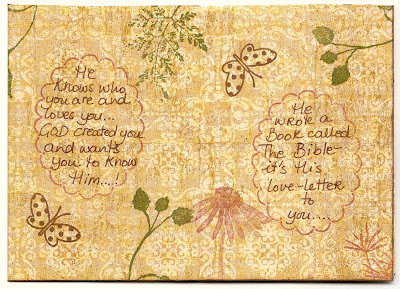 He
Knows who
you are and
loves you...
GOD created you
and wants
you to know
Him....!
He
wrote a
Book called
The Bible-
it's His
love-letter
to
you....